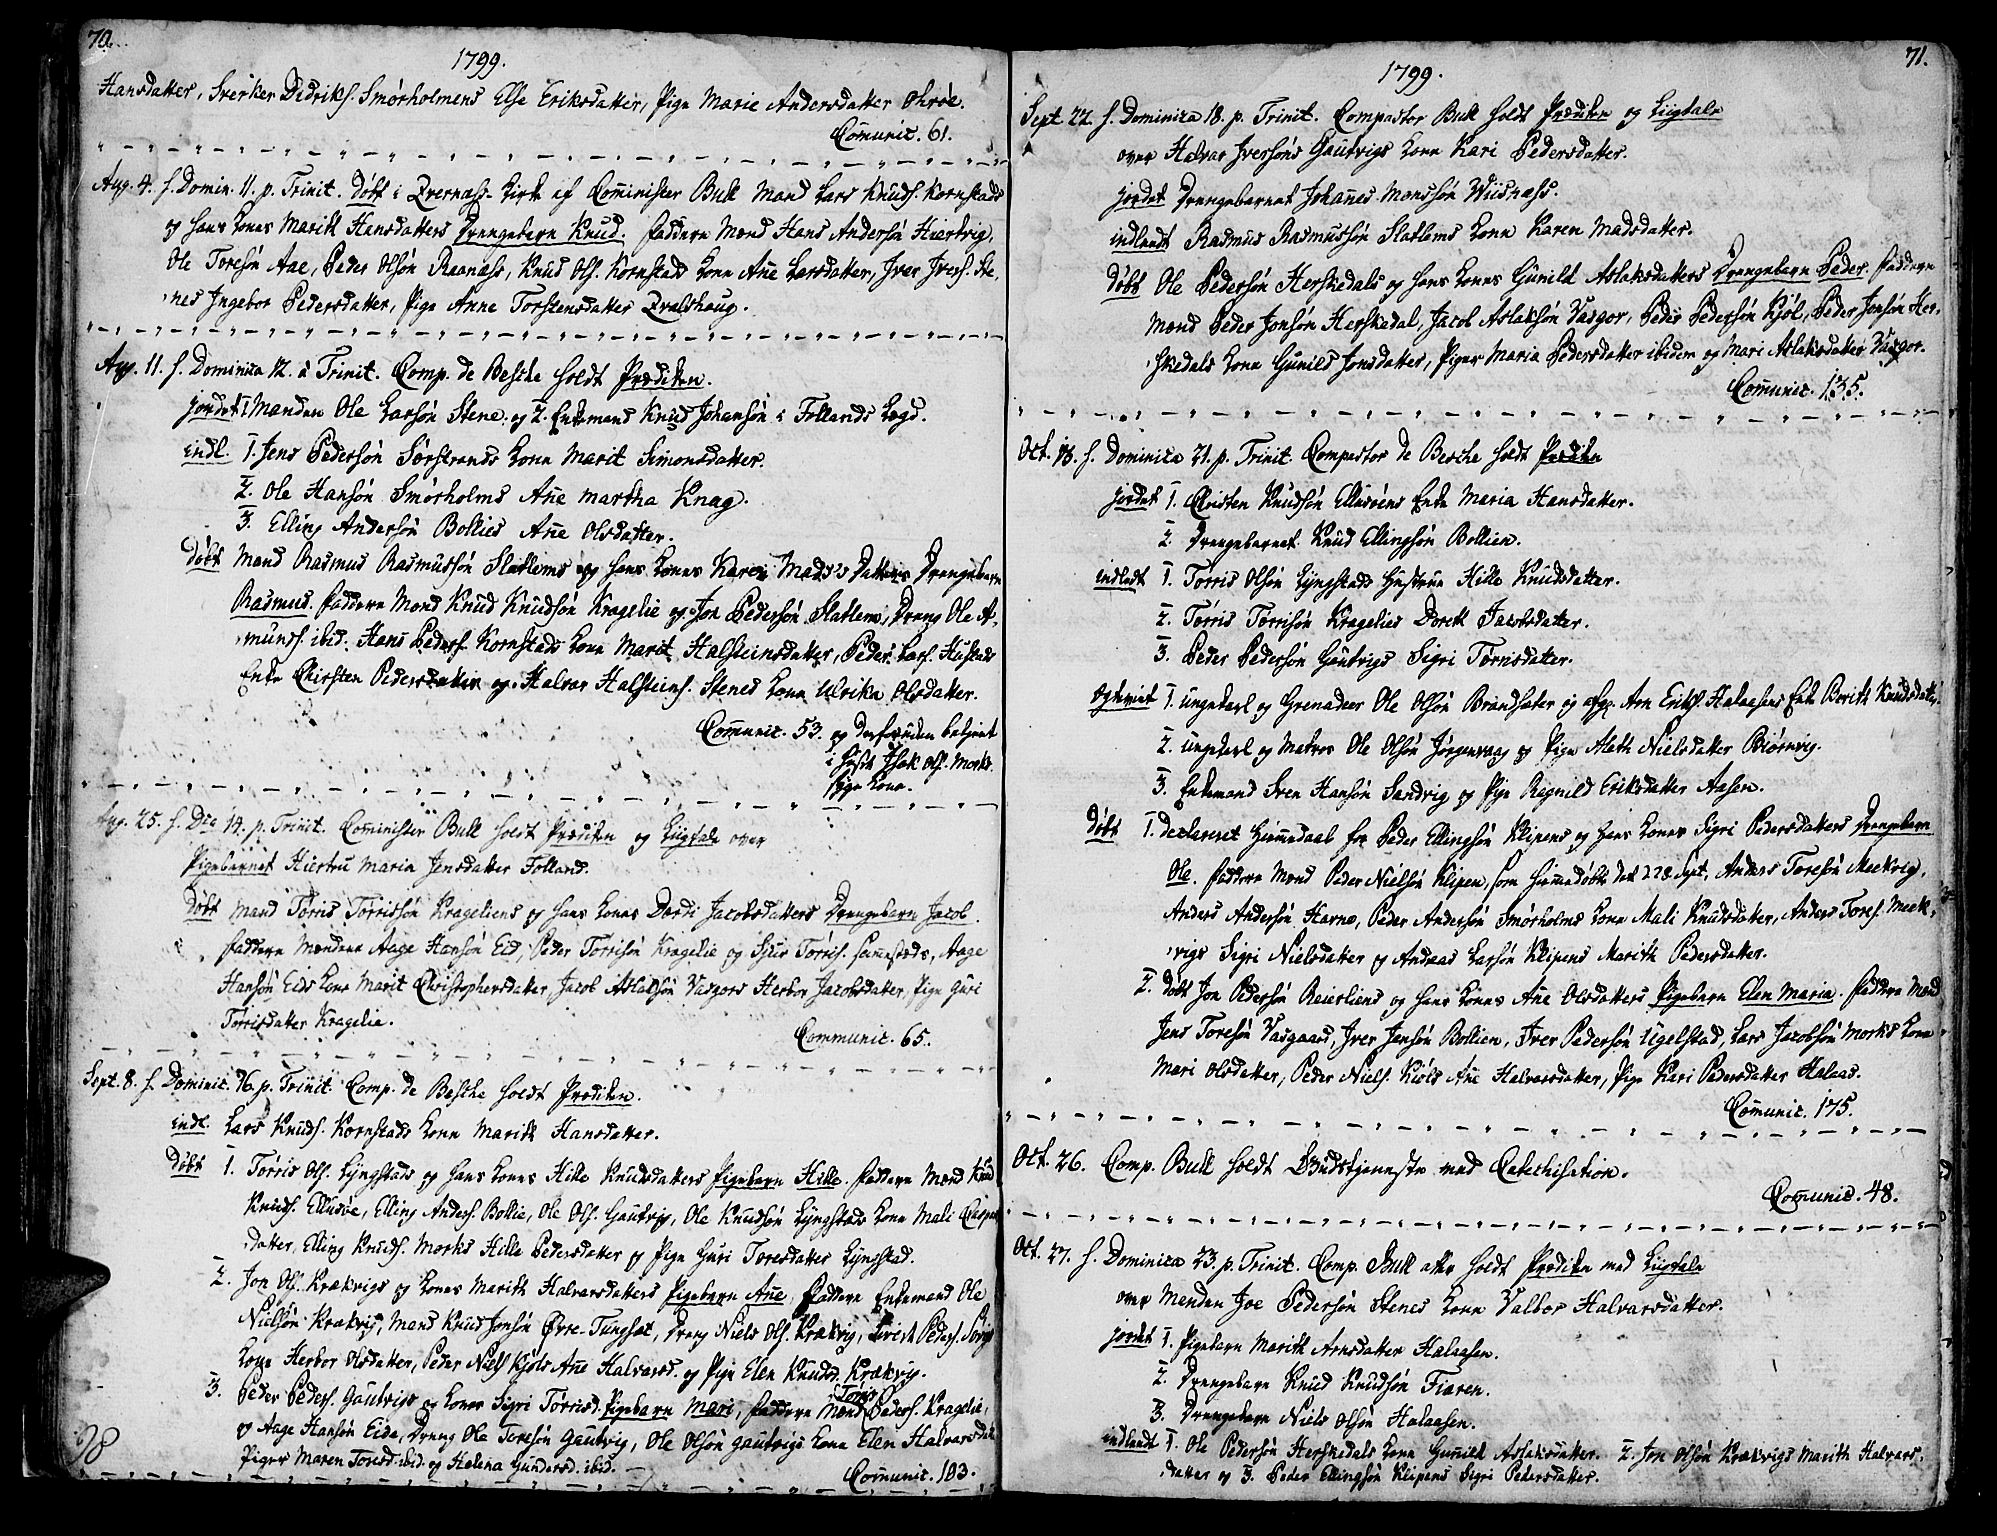 70.
1799.
Hansdatter, Sverker Didriks. Smørholmens Else Eriksdatter, Pige Marie Andersdatter Ohrøe.
Comunic. 61.
Aug. 4. f. Domin. 11. p. Trinit. Døbt i Qvernæs-Kirke af Cominister Bull Mand Lars Knuds. Kornstads
og hans Kones Marith Hansdatters Drengebarn Knud. Faddere Mænd Hans Andersøn Hiertvig,
Ole Toresøn Aae, Peder Olsøn Reanæss, Knud Ols. Kornstads Kone Ane Larsdatter, Iver Ivers. Ste,
nes Ingebor Pedersdatter, Pige Anne Torstensdatter Qvalshaug.
Aug. 11. f. Dominica 12. à Trinit. Comp. de Besche holdt Prædiken.
jordet 1 Manden Ole Larsøn Stene. og 2. Enkemand Knud Johansøn i Follands Legd.
indl. 1. Jens Pedersøn Sørstrands Kone Marit Simonsdatter.
2. Ole Hansøn Smørholms Ane Martha Knag.
3. Elling Andersøn Bollies Ane Olsdatter.
Døbt Mand Rasmus Rasmussøn Slatlems og hans Kones Karen Mads's Datters Drengebarn
Rasmus. Faddere Mænd Knud Knudsøn Kragelie og Jon Pedersøn Slatlem, Dreng Ole A,
munds. ibid. Hans Peders. Kornstads Kone Marit Halsteinsdatter, Peder Lars. Hustads
Enke Chirsten Pedersdatter og Halvor Halsteins. Stenes Kone Ulrika Olsdatter.
Comunic. 53. og desforuden betjent
i Huset Isak Ols. Morks
syge Kone.
Aug. 25. f. Dca 14. p. Trinit. Cominister Bull holdt Prædiken og Liigtale over
Pigebarnet Hustru Maria Jensdatter Folland.
Døbt Mand Tørris Tørrissøn Kragliens og hans Kones Dordi Jacobsdatters Drengebarn Jacob.
Faddere Mændene Aage Hansøn Eid, Peder Torrisøn Kragelie og Siur Tørris. sammesteds, Aage
Hansøn Eids Kone Marit Christophersdatter, Jacob Aslaksøn Vasgors Herbor Jacobsdatter, Pige Guri
Tørrisdatter Kragelie.
Communic. 65.
Sept. 8. f. Dominic. 16. p. Trinit. Comp. de Besche holdt Prædiken.
indl. Lars Knuds. Kornstads Kone Marith Hansdatter.
Døbt 1. Tørris Ols. Lyngstads og hans Kones Hille Knudsdatters Pigebarn Hille. Faddere Mænd Knud
Knuds. Ellusøe, Elling Anders. Bollie, Ole Ols. Gautvig, Ole Knudsøn Lyngstads Kone Mali
datter, Elling Knuds. Morks Hille Pedersdatter og Pige Guri Toresdatter Lyngstad.
2. Jon Ols. Krækvigs og Kones Marith Halvarsdatters Pigebarn Ane, Faddere Enkemand Ole
Nielsøn Krækvig, Mand Knud Jonsøn Øvre-Tungset, Dreng Niels Ols. Krækvig, Peders.
Kone Herbor Olsdatter, Peder Niels Kjøls Ane Halvarsd. og Pige Elen Knudsd. Krækvig.
3. Peder Peders. Gautvigs og Kones Sigri Tørrisd. Pigebarn Mari, Faddere Mænd Torris Peders. Kragelie,
og Aage Hansøn Eide, Dreng Ole Toresøn Gautvig, Ole Olsøn Gautvigs Kone Elen Halvarsdatter
Piger Maren Toresd. ibid. og Helena Gundersd. ibid.
Comunic. 103.
98
71.
1799.
Sept 22. f. Dominica 18. p. Trinit. Compastor Bull holdt Prædiken og Liigtale
over Halvor Iversøns Gautvigs Kone Kari Pedersdatter.
jordet Drengebarnet Johanes Monssøn Wiisnæss.
indledt Rasmus Rasmussøn Slatlems Kone Karen Madsdatter.
Døbt Ole Pedersøn Herskedals og hans Kones Gunild Aslaksdatters Drengebarn Peder. Faddere
Mænd Peder Jonsøn Herskedal, Jacob Aslaksøn Vasgor, Peder Pedersøn Kjøl, Peder Jonsøn Her,
skedals Kone Gunild Jonsdatter, Piger Maria Pedersdatter ibidem og Mari Aslaksdatter Vasgor.
Comunic. 135.
Oct. 13. f. Dominica 21. p. Trinit. Compastor de Besche holdt Prædiken
jordet 1. Christen Knudsøn Ellusøens Enke Maria Hansdatter.
2. Drengebarnet Knud Ellingsøn Bollien.
indledt 1. Torris Olsøn Lyngstads Hustrue Hille Knudsdatter.
2. Tørris Tørrisøn Kragelies Doreth Jacobsdatter.
3. Peder Pedersøn Gautvigs Sigri Tørrisdatter.
Copuleret 1. ungkarl og Grenadeer Ole Olsøn Brandsæter og afg. Arn Eriks. Halaasens Enke Berith Knudsdatter.
2. ungkarl og Matros Ole Olsøn Jörgenvaag og Pige Aleth Nielsdatter Biörnvig.
3. Enkemand Sven Hansøn Sandvig og Pige Ragnild Eriksdatter Aasen.
Døbt 1. declareret Hiemedaab for Peder Ellingsøn Klipens og hans Kones Sigri Pedersdatters Drengebarn
Ole. Faddere Mænd Peder Nielsøn Klipen, som hiemedøbte det 22 Sept, Anders Toresøn Meekvig,
Anders Andersøn Havnæ, Peder Andersøn Smørholms Kone Mali Knudsdatter, Anders Tores. Meek,
vigs Sigri Nielsdatter og Andreas Larsøn Klipens Marith Pedersdatter.
2. Døbt Jon Pedersøn Reiersliens og hans Kones Ane Olsdatters Pigebarn Elen Maria. Faddere Mænd
Jens Toresøn Vasgaard, Iver Jensøn Bollien, Iver Pedersøn Ugelstad, Lars Jacobsøn Morks Kone
Mari Olsdatter, Peder Niels. Kiöls Ane Halvarsdatter, Pige Kari Pedersdatter Halaas.
Comunic. 175.
Oct. 26. Comp. Bull holdt Gudstjeneste med Catechisation.
Comunic. 48.
Oct. 27. f. Dominica 23. p. Trinit. Comp. Bull atter holdt Prædiken med Liigtale
over Manden Joe Pedersøn Stenes Kone Valbor Halvarsdatter.
jordet 1. Pigebarn Marith Arnsdatter Halaasen.
2. Drengebarn Knud Knudsøn Fiæren.
3. Drengebarn Niels Olsøn Halaasen.
indledt 1. Ole Pedersøn Herskedals Kone Gunild Aslaksdatter. 2. Jon Olsøn Krækvigs Marith Halvars,
datter og 3. Peder Ellingsøn Klipens Sigri Pedersdatter.